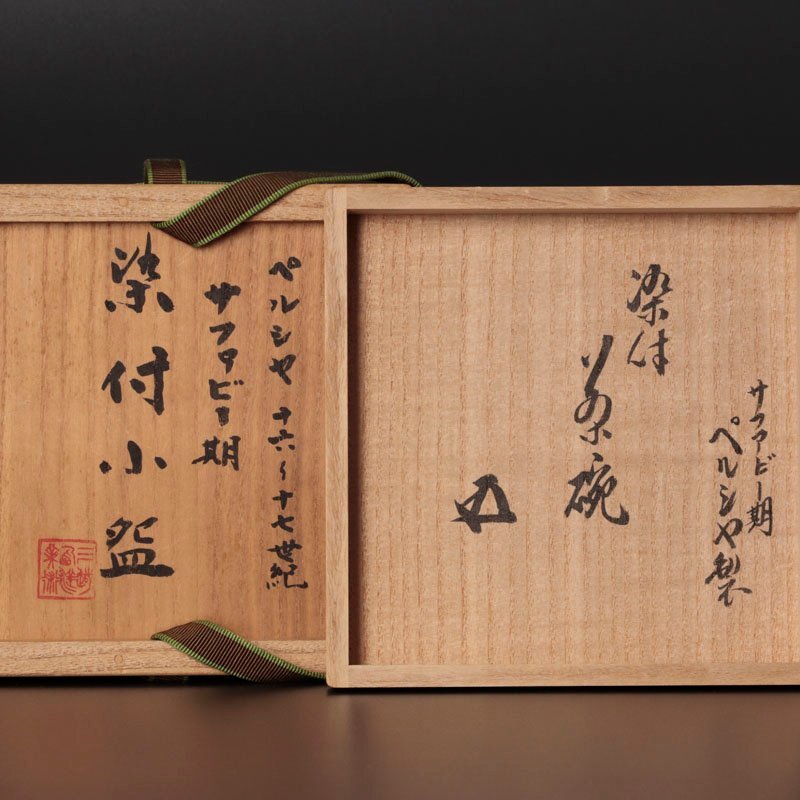 ペルシャ 十六〜十七世紀
サファビー期
染付小盌
サファービー期
ペルシャ製
染付
茶碗